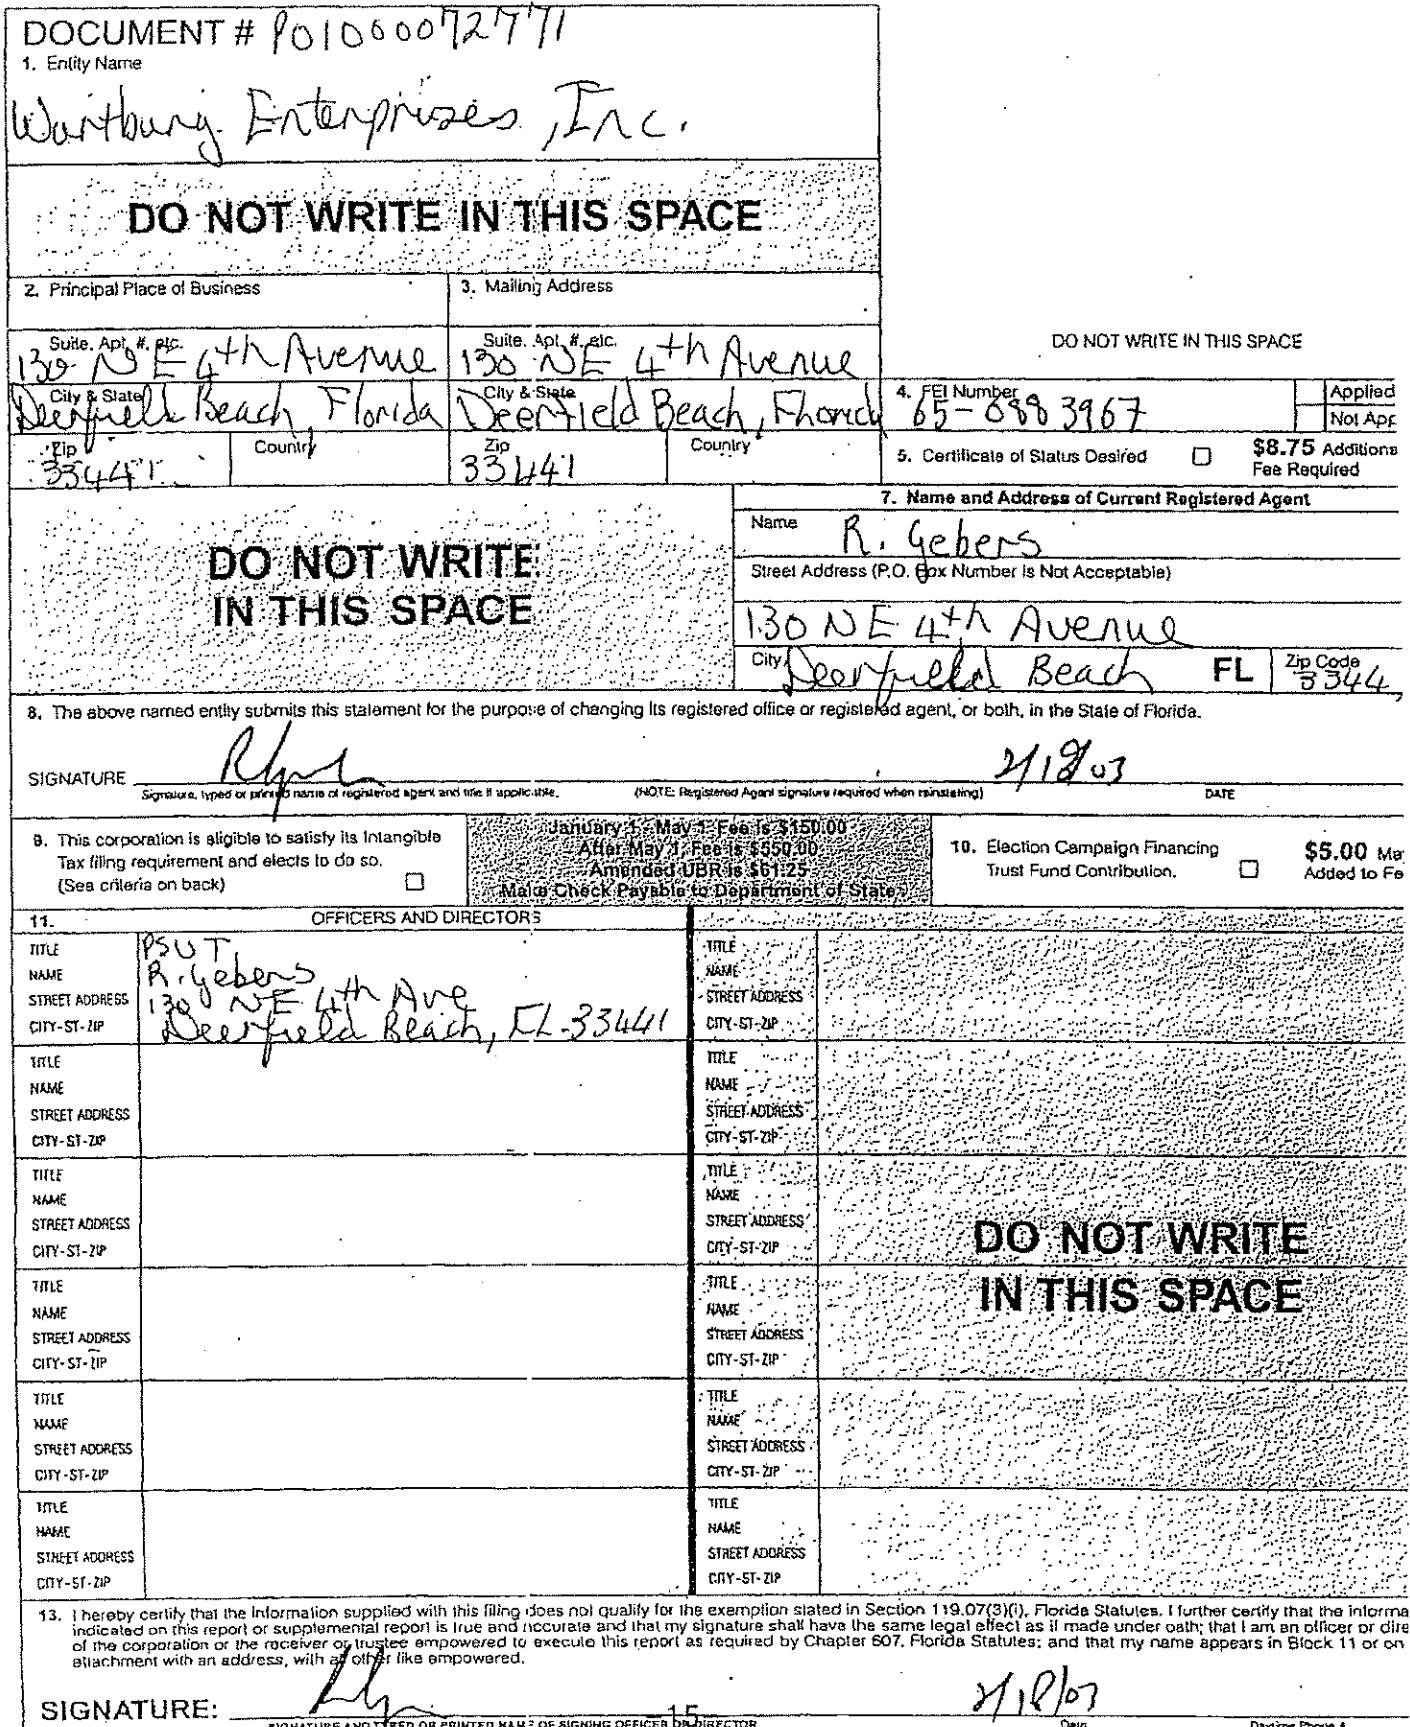 DOCUMENT # P01000072771
1. Entity Name
Wartburg Enterprises, Inc.
DO NOT WRITE IN THIS SPACE
2. Principal Place of Business
3. Mailing Address
Suite, Apt. #, etc.
130 NE 4th Avenue
Suite, Apt. #, etc.
130 NE 4th Avenue
DO NOT WRITE IN THIS SPACE
City & State
Deerfield Beach, Florida
City & State
Deerfield Beach, Florid
4. FEI Number
65-0883967
Applied
Not App
Zip
33441
Country
Zip
33441
Country
5. Certificate of Status Desired
$8.75 Additiona
Fee Required
DO NOT WRITE
IN THIS SPACE
7. Name and Address of Current Registered Agent
Name
R. Gebers
Street Address (P.O. Box Number is Not Acceptable)
130 NE 4th Avenue
City
Deerfield Beach
FL
Zip Code
3344
8. The above named entity submits this statement for the purpose of changing its registered office or registered agent, or both, in the State of Florida.
SIGNATURE
2/18/03
Signature, typed or printed name of registered agent and title if applicable.
(NOTE: Registered Agent signature required when reinstating)
DATE
9. This corporation is eligible to satisfy its Intangible
Tax filing requirement and elects to do so.
(See criteria on back)
January 1 - May 1 Fee is $150.00
After May 1, Fee is $550.00
Amended UBR is $61.25
Make Check Payable to Department of State
10. Election Campaign Financing
Trust Fund Contribution.
$5.00 Ma
Added to Fe
11.
OFFICERS AND DIRECTORS
TITLE
PSVT
NAME
R. Gebers
STREET ADDRESS
130 NE 4th Ave
CITY-ST-ZIP
Deerfield Beach, FL 33441
TITLE
NAME
STREET ADDRESS
CITY-ST-ZIP
TITLE
NAME
STREET ADDRESS
CITY-ST-ZIP
TITLE
NAME
STREET ADDRESS
CITY-ST-ZIP
TITLE
NAME
STREET ADDRESS
CITY-ST-ZIP
TITLE
NAME
STREET ADDRESS
CITY-ST-ZIP
TITLE
NAME
STREET ADDRESS
CITY-ST-ZIP
TITLE
NAME
STREET ADDRESS
CITY-ST-ZIP
TITLE
NAME
STREET ADDRESS
CITY-ST-ZIP
TITLE
NAME
STREET ADDRESS
CITY-ST-ZIP
TITLE
NAME
STREET ADDRESS
CITY-ST-ZIP
TITLE
NAME
STREET ADDRESS
CITY-ST-ZIP
DO NOT WRITE
IN THIS SPACE
13. I hereby certify that the information supplied with this filing does not qualify for the exemption stated in Section 119.07(3)(i), Florida Statutes. I further certify that the informa
indicated on this report or supplemental report is true and accurate and that my signature shall have the same legal effect as if made under oath; that I am an officer or dire
of the corporation or the receiver or trustee empowered to execute this report as required by Chapter 607, Florida Statutes; and that my name appears in Block 11 or on
attachment with an address, with all other like empowered.
SIGNATURE:
15
2/18/03
SIGNATURE AND TYPED OR PRINTED NAME OF SIGNING OFFICER OR DIRECTOR
Date
Daytime Phone #